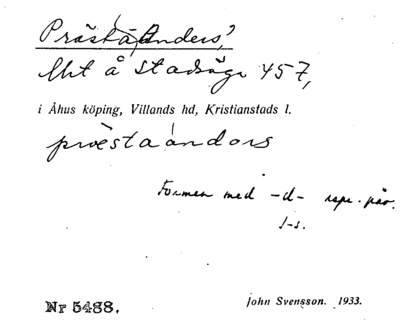 Prästa Anders,
Mt å stadsäga 457,
i Åhus köping, Villands hd, Kristianstads l.
præsta andors
Formen med -d-
Nr 5488.
John Svensson. 1933.